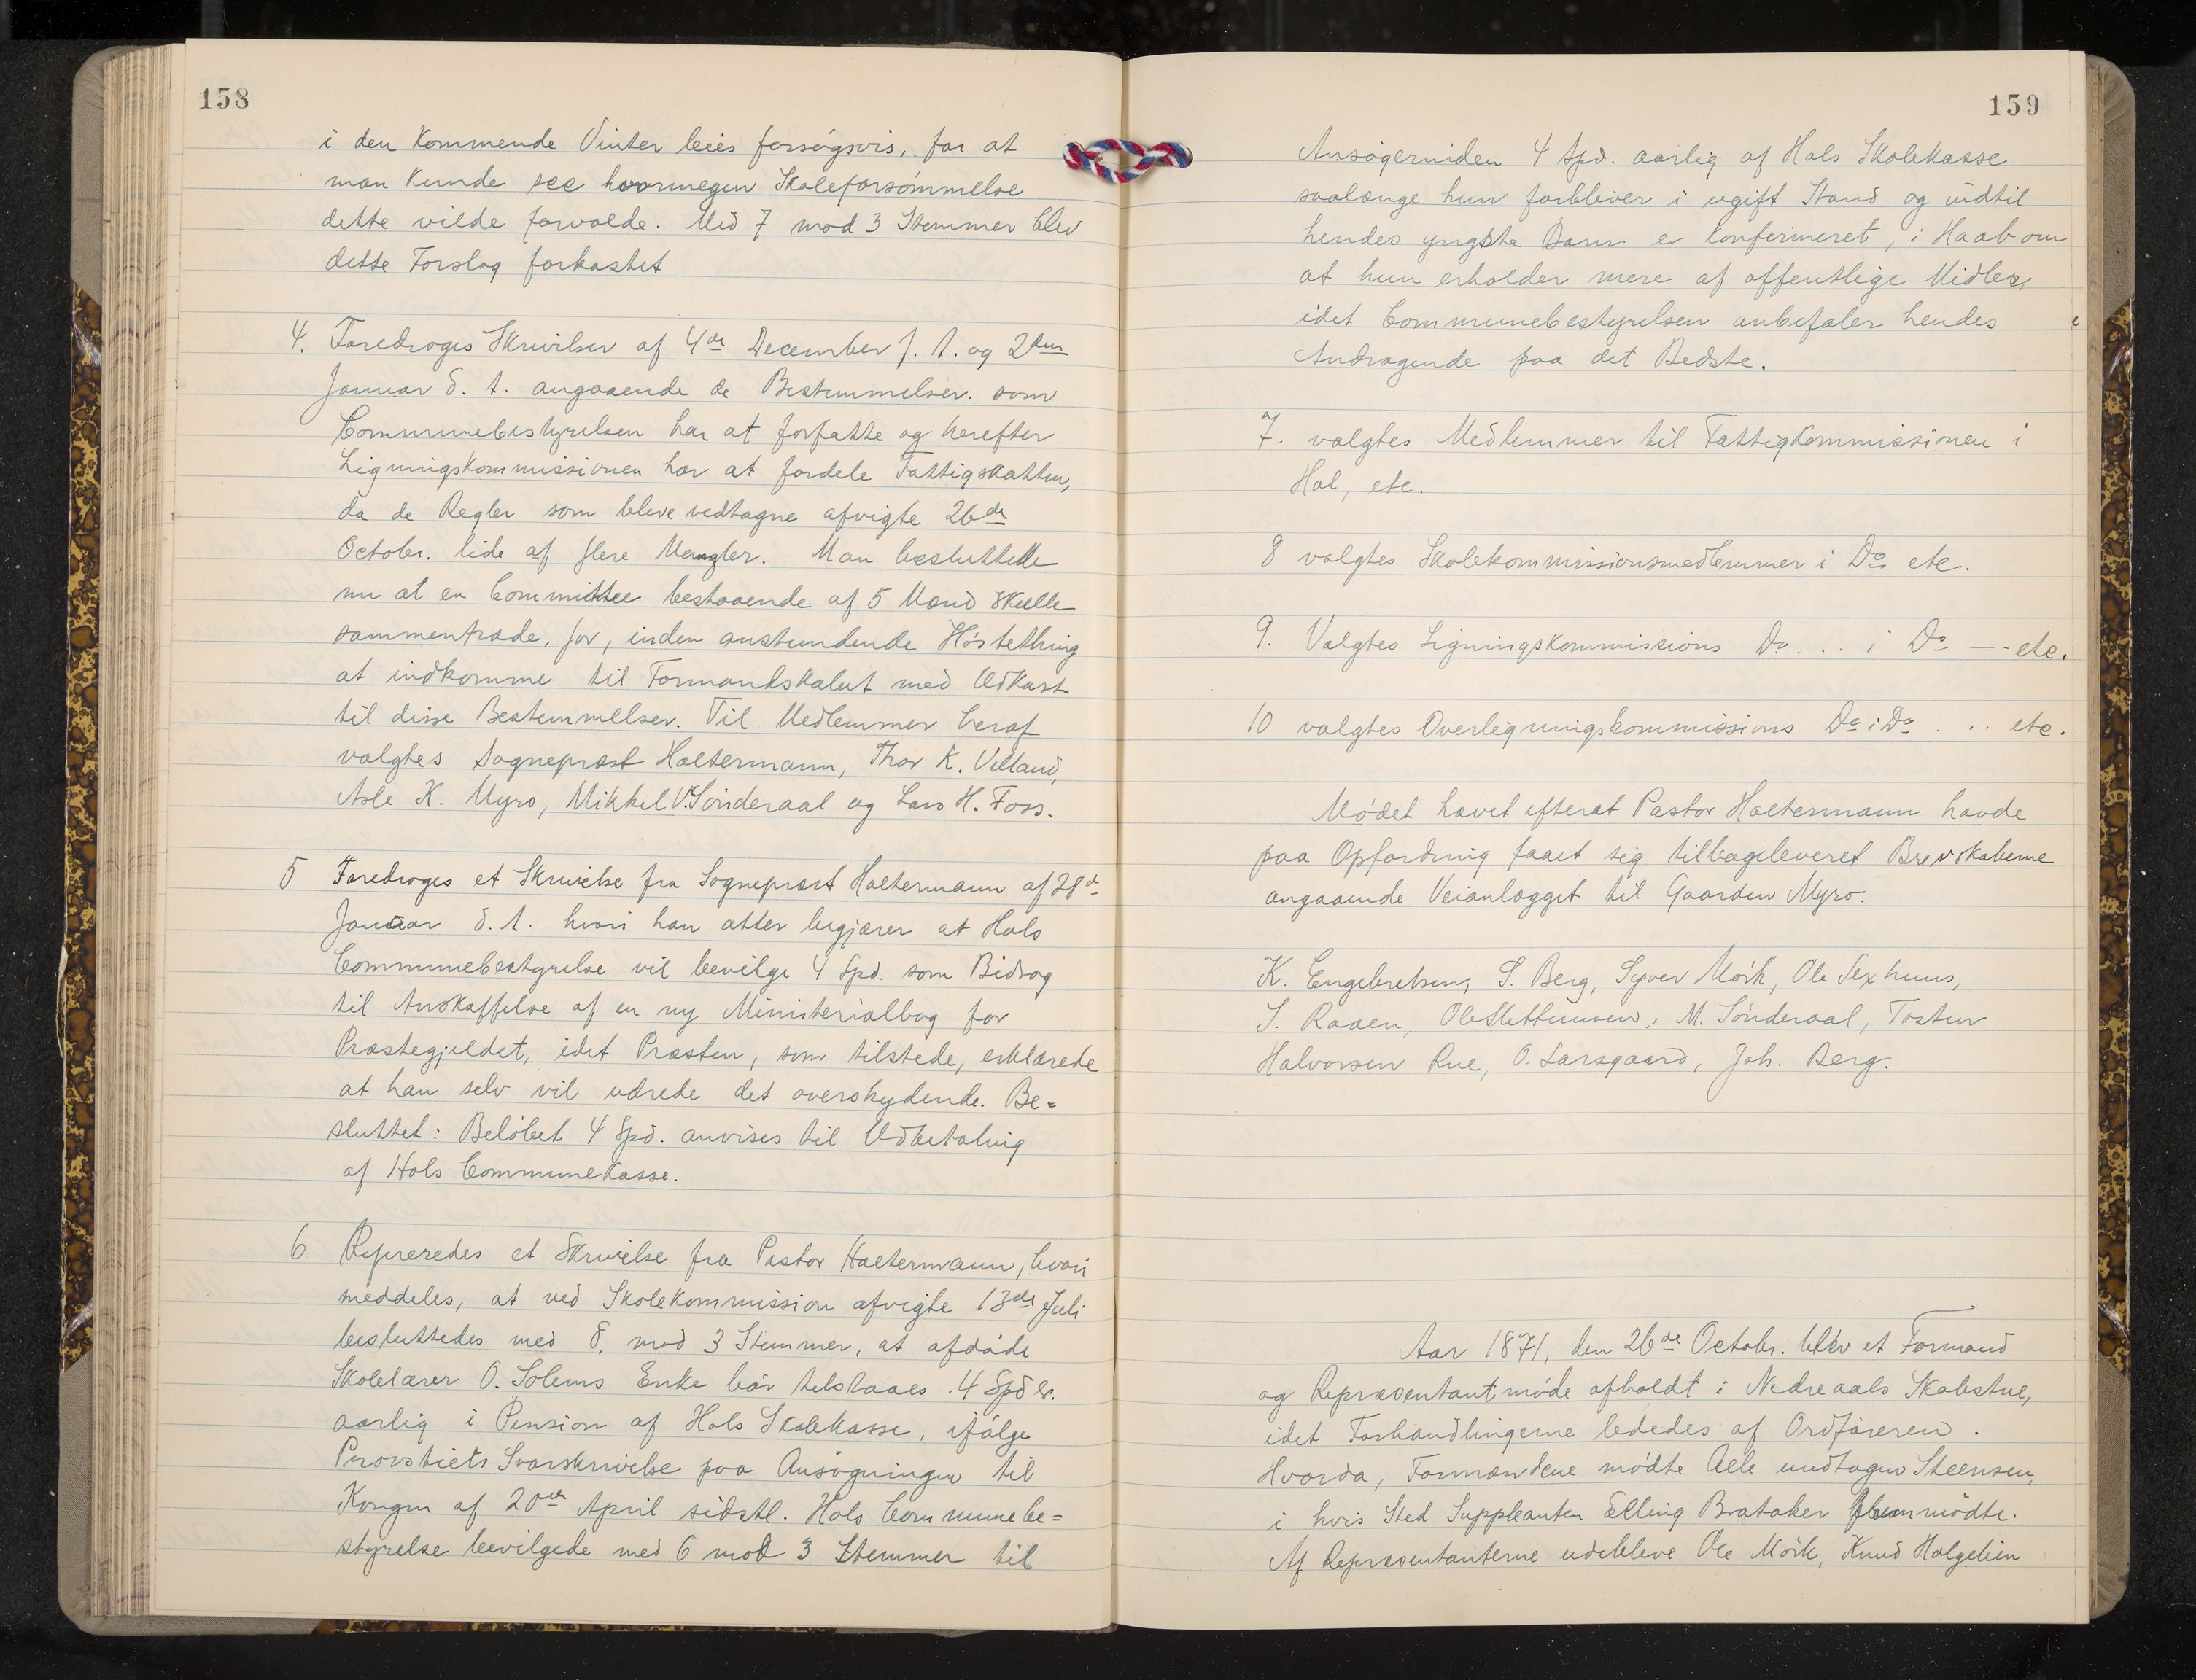 158
i den Kommende Vinter leies forsøgsvis, for at
man kunde see hvormegen Skoleforsømmelse
dette vilde forvolde. Med 7 mod 3 Stemmer blev
dette Forslag forkastet
4. Foredroges Skrivelser af 4de December f. A. og 2den
Januar d. A. angaaende de Bestemmelser som
Communebestyrelsen har at forfatte og herefter
Ligningskommissionen har at fordele Fattigskatten,
da de Regler som bleve vedtagne afvigte 26de
Octobr. lide af flere Mangler. Man besluttede
nu at en Committee bestaaende af 5 Mænd skulle
sammentræde, for, inden anstundende Høstething
at indkomme til Formandskabet med Udkast
til disse Bestemmelser. Til Medlemmer heraf
valgtes Sogneprest Holtermann, Thor K. Villand,
Asle K. Myro, Mikkel V. Sønderaal og Lars H. Foss.
5 Foredroges et Skrivelse fra Sogneprest Holtermann af 28de
Januar d. A. hvori han atter begjærer at Hols
Communebestyrelse vil bevilge 4 Spd. som Bidrag
til Anskaffelse af en ny Ministerialbog for
Præstegjeldet, idet Præsten, som tilstede, erklærede
at han selv vil udrede det overskydende. Be=
sluttet: Beløbet 4 Spd. anvises til Udbetaling
af Hols Communekasse.
6 Refereredes et Skrivelse fra Pastor Holtermann, hvori
meddeles, at ved Skolekommission afvigte 13de Juli
besluttedes med 8, mod 3 Stemmer, at afdøde
Skolelærer O. Solems Enke bør tilstaaes 4 Spdlr.
aarlig i Pension af Hols Skolekasse, ifølge
Provstiets Svarskrivelse paa Ansøgningen til
Kongen af 20de April sidstl. Hols Communebe=
styrelse bevilgede med 6 mod 3 Stemmer til
159
Ansøgerinden 4 Spd. aarlig af Hols Skolekasse
saalænge hun forbliver i ugift Stand og indtil
hendes yngste Barn er konfirmeret, i Haab om
at hun erholder mere af offentlige Midler,
idet Communebestyrelsen anbefaler hendes
Andragende paa det Bedste.
7. valgtes Medlemmer til Fattigkommissionen i
Hol, etc.
8 valgtes Skolekommissionsmedlemmer i Do etc.
9. Valgtes Ligningskommissions Do. . . i Do –- etc.
10 valgtes Overligningskommissions Do i Do . . . etc.
Mødet hævet efterat Pastor Holtermann havde
paa Opfordring faaet sig tilbageleveret Brevskaberne
angaaende Veianlægget til Gaarden Myro.
K. Engebretsen, S. Berg, Syver Mørk, Ole Sexhuus,
S. Raaen, Ole Slettemoen, M. Sønderaal, Tosten
Halvorsen Rue, O. Larsgaard, Joh. Berg.
Aar 1871, den 26de Octobr. blev et Formand
og Repræsentantmøde afholdt i Nedreaals Skolestue,
idet Forhandlingerne lededes af Ordføreren.
Hvorda, Formændene mødte Alle undtagen Steensen,
i hvis Sted Suppleanten Elling Brataker fremmødte.
Af Repræsentanterne udebleve Ole Mörk, Knud Holgeheim